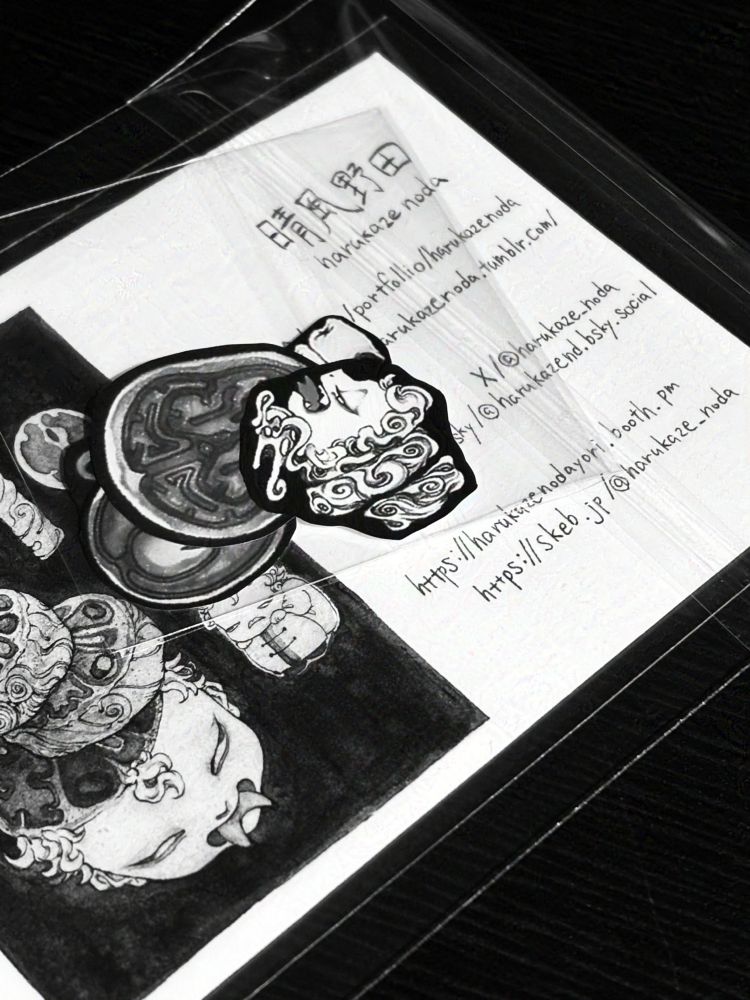 晴風野田
harukaze noda
/portfolio/harukazenoda
arukazenoda.tumblr.com/
X/@harukaze_noda
sky/@harukazend.bsky.social
https://harukazenodayori.booth.pm
https://skeb.jp/@harukaze_noda